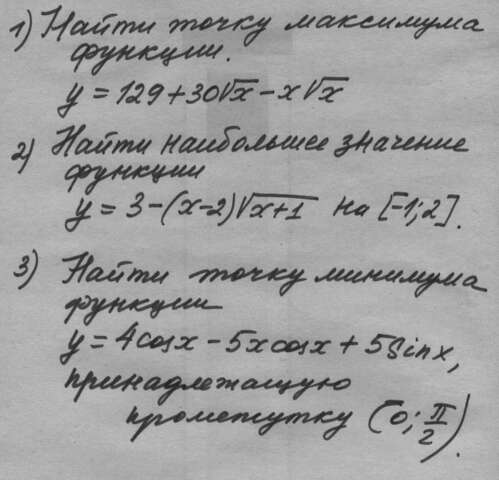 1) Найти точку максимума
функции.
y = 129 + 30√x − x√x
2) Найти наибольшее значение
функции
y = 3 − (x−2)√x+1 на [-1; 2].
3) Найти точку минимума
функции
y = 4cosx − 5xcosx + 5sinx,
принадлежащую
промежутку (0; π/2).